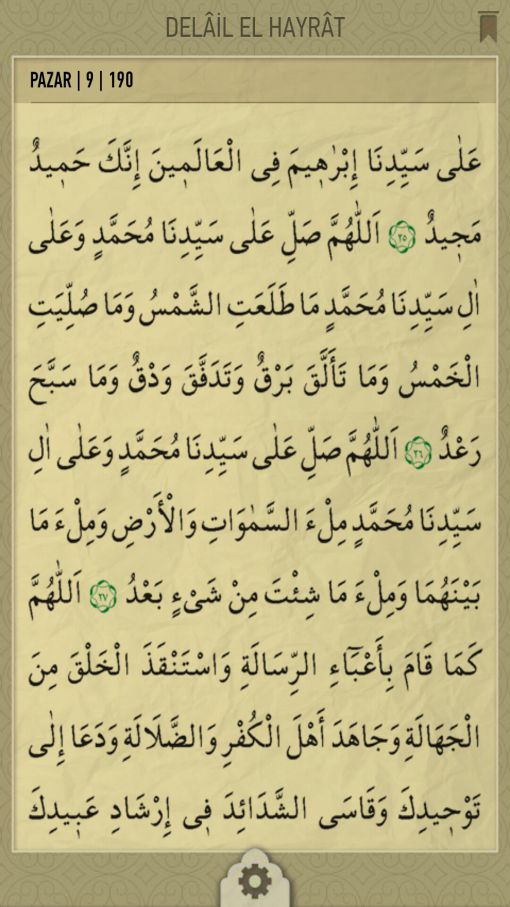 DELÂİL EL HAYRÂT
PAZAR | 9 | 190
عَلٰى سَيِّدِنَا إِبْرٰهِيمَ فِى الْعَالَمِينَ إِنَّكَ حَمِيدٌ
مَجِيدٌ ٢٥ اَللّٰهُمَّ صَلِّ عَلٰى سَيِّدِنَا مُحَمَّدٍ وَعَلٰى
اٰلِ سَيِّدِنَا مُحَمَّدٍ مَا طَلَعَتِ الشَّمْسُ وَمَا صُلِّيَتِ
الْخَمْسُ وَمَا تَأَلَّقَ بَرْقٌ وَتَدَفَّقَ وَدْقٌ وَمَا سَبَّحَ
رَعْدٌ ٢٦ اَللّٰهُمَّ صَلِّ عَلٰى سَيِّدِنَا مُحَمَّدٍ وَعَلٰى اٰلِ
سَيِّدِنَا مُحَمَّدٍ مِلْءَ السَّمٰوَاتِ وَالْأَرْضِ وَمِلْءَ مَا
بَيْنَهُمَا وَمِلْءَ مَا شِئْتَ مِنْ شَىْءٍ بَعْدُ ٢٧ اَللّٰهُمَّ
كَمَا قَامَ بِأَعْبَٓاءِ الرِّسَالَةِ وَاسْتَنْقَذَ الْخَلْقَ مِنَ
الْجَهَالَةِ وَجَاهَدَ أَهْلَ الْكُفْرِ وَالضَّلَالَةِ وَدَعَا إِلٰى
تَوْحِيدِكَ وَقَاسَى الشَّدَائِدَ فِى إِرْشَادِ عَبِيدِكَ